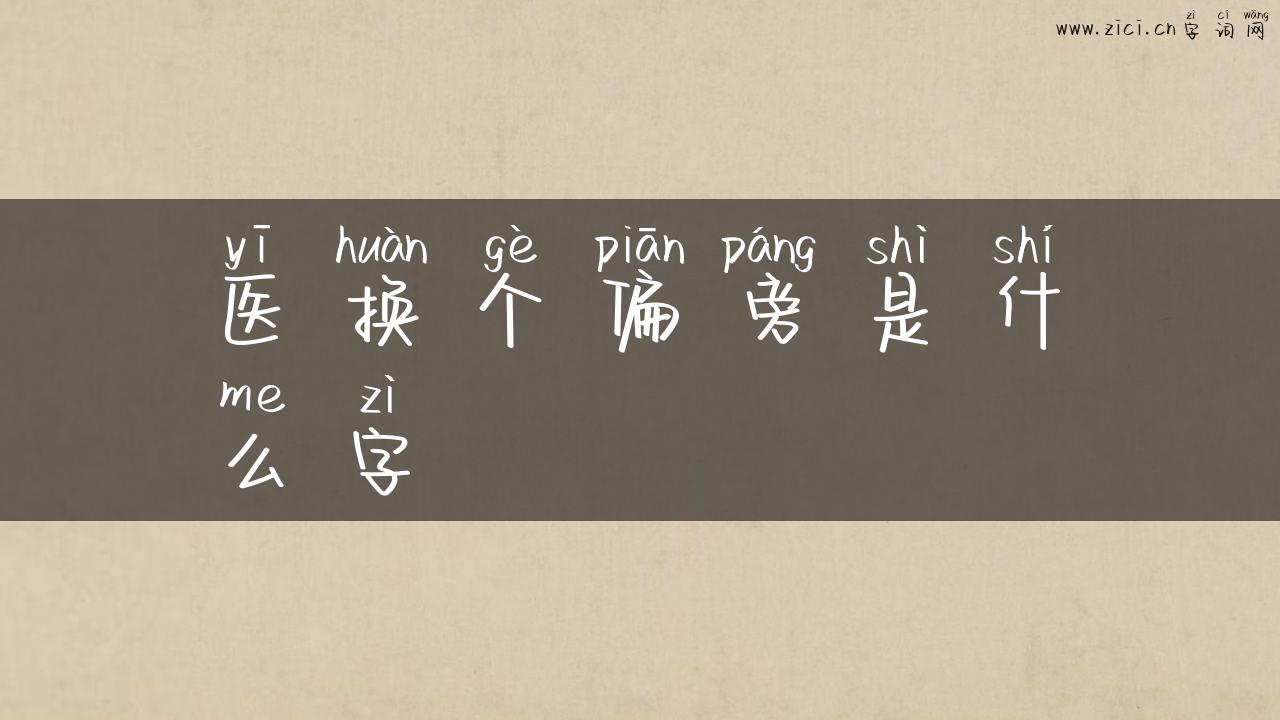 zì cí wǎng
www.zici.cn 字 词 网
yī huàn gè piān páng shì shí
医 换 个 偏 旁 是 什
me zì
么 字